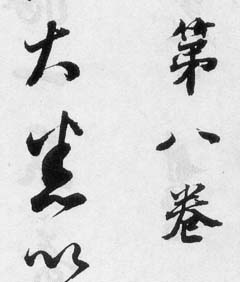 第八卷
大悉以